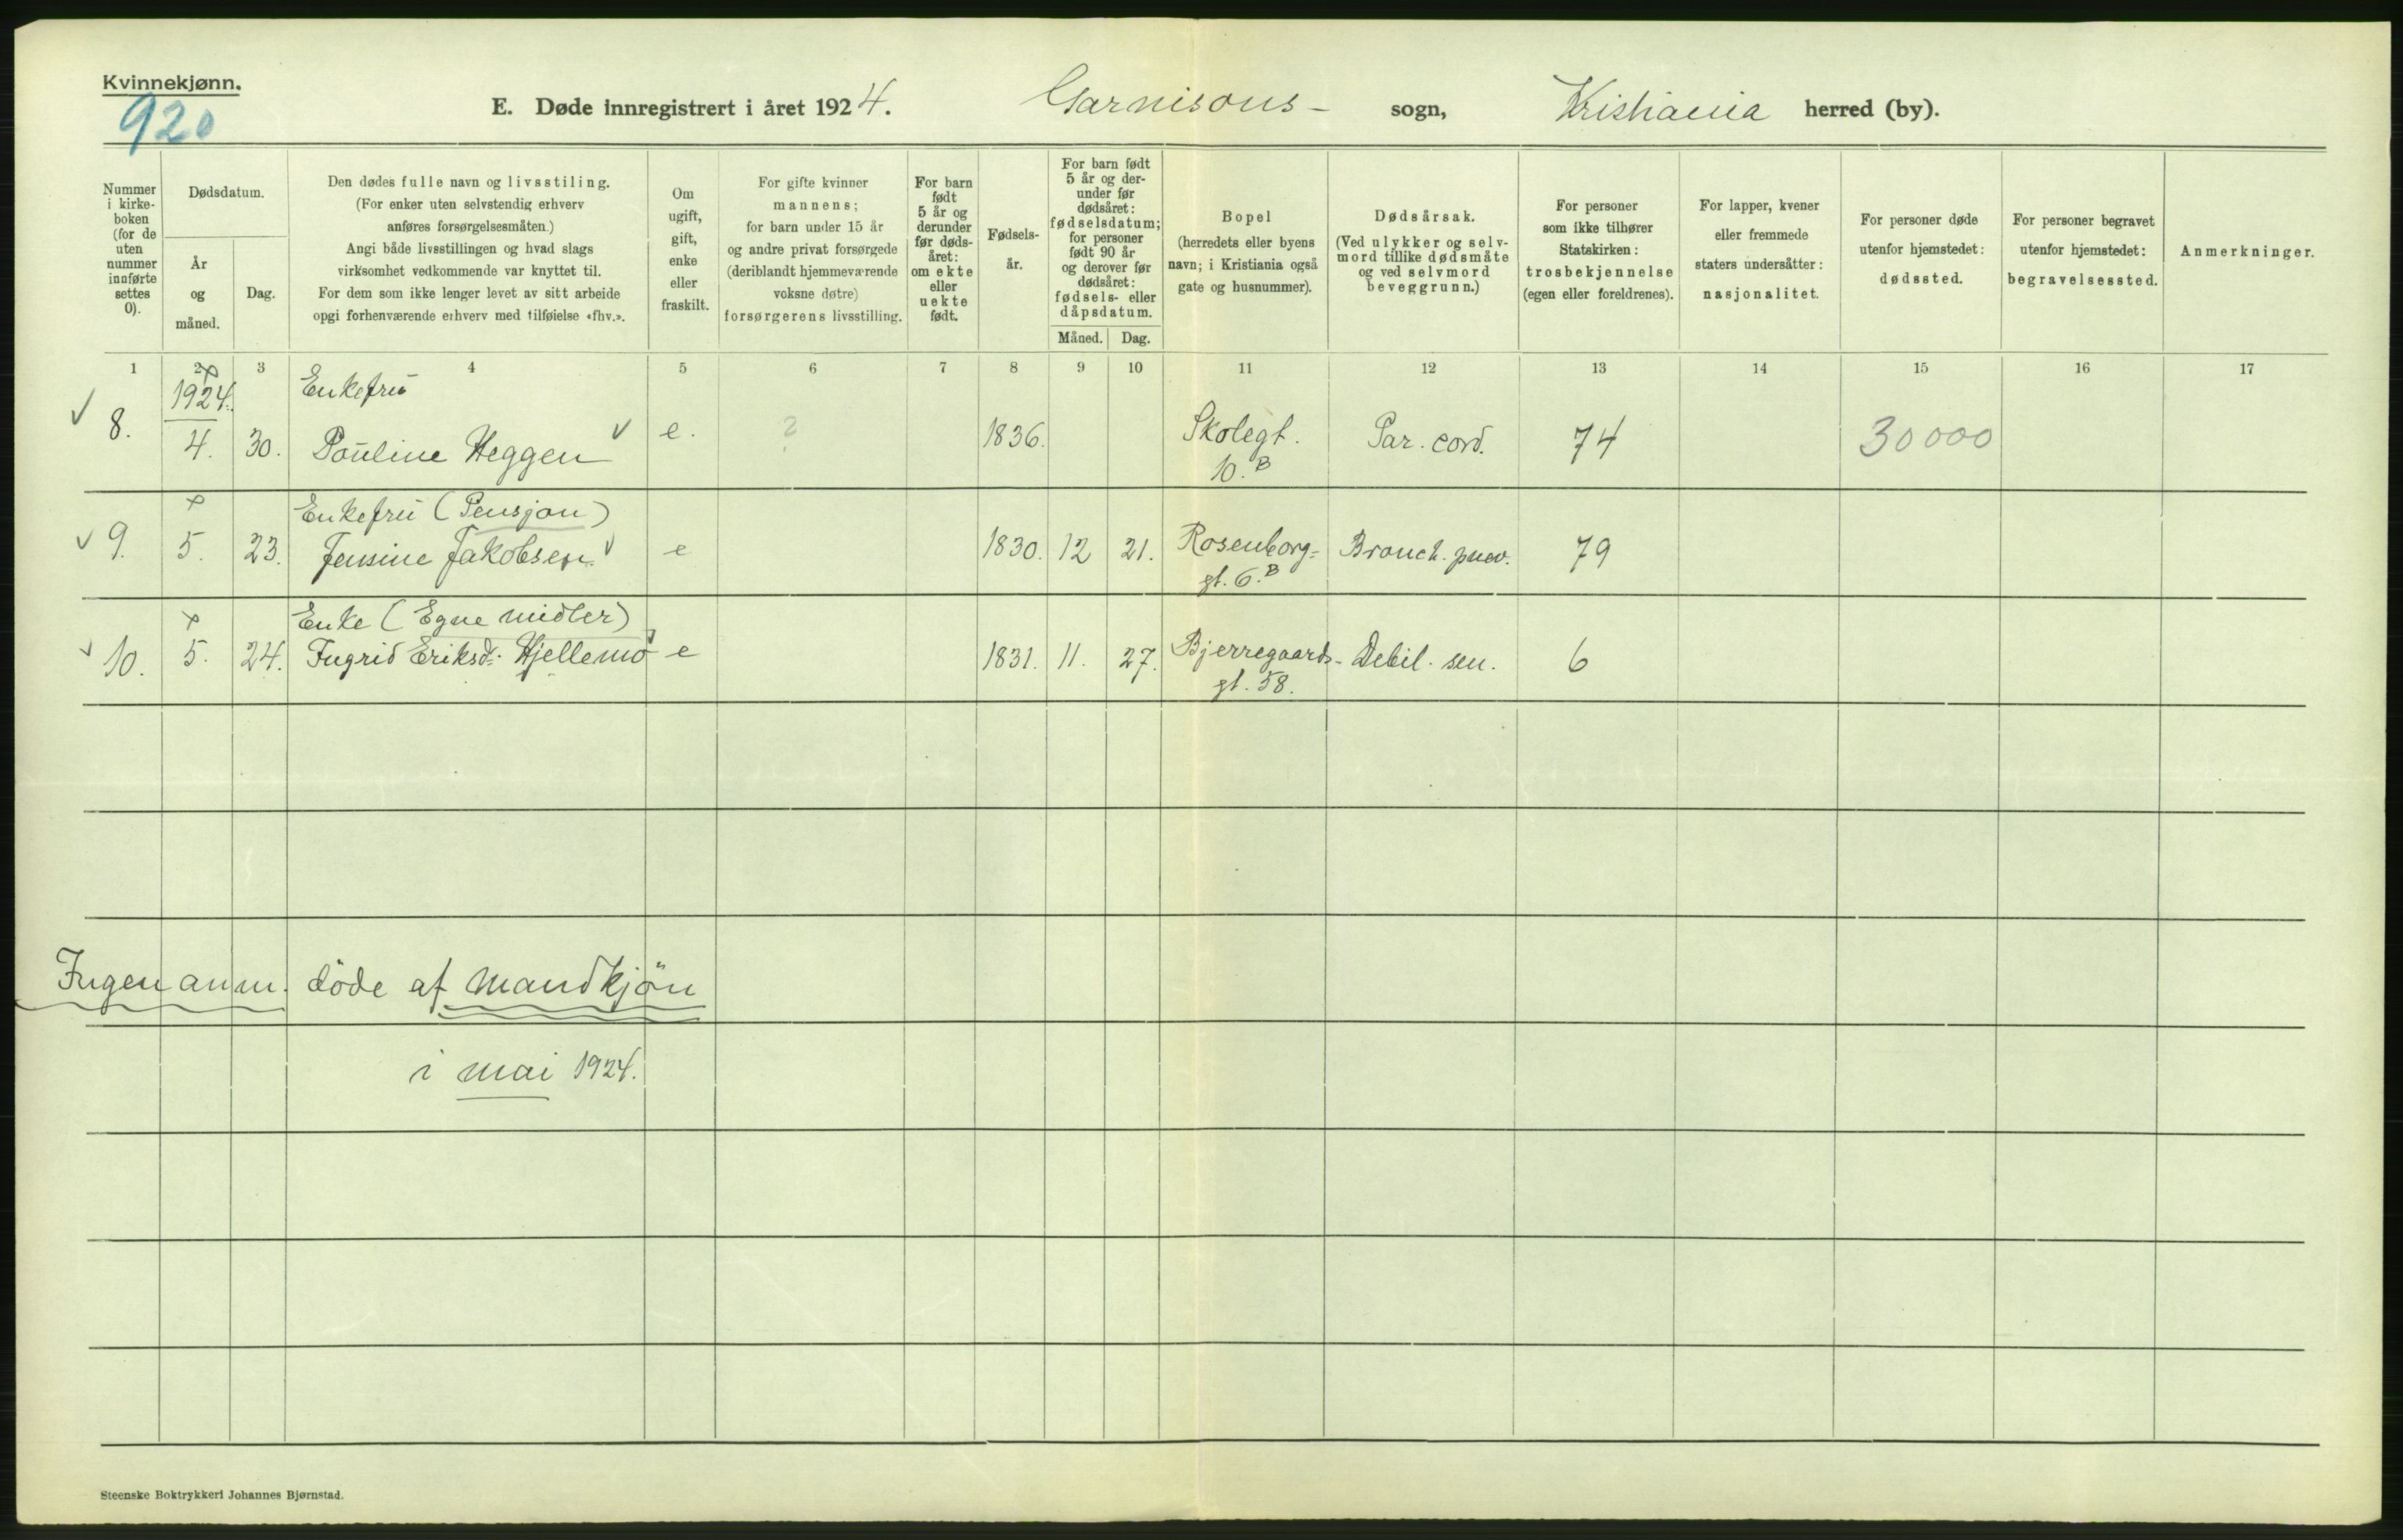 Kvinnekjønn.
920
E. Døde innregistrert i året 1924. Garnisons- sogn, Kristiania herred (by).
Nummer i kirke-boken (for de uten nummer innførte settes 0).
Dødsdatum.
År og måned.
Dag.
Den dødes fulle navn og livsstiling.
(For enker uten selvstendig erhverv
anføres forsørgelsesmåten.)
Angi både livsstillingen og hvad slags
virksomhet vedkommende var knyttet til.
For dem som ikke lenger levet av sitt arbeide
opgi forhenværende erhverv med tilføielse «fhv.».
Om
ugift,
gift,
enke
eller
fraskilt.
For gifte kvinner
mannens;
for barn under 15 år
og andre privat forsørgede
(deriblandt hjemmeværende
voksne døtre)
forsørgerens livsstilling.
For barn
født
5 år og
derunder
før døds-
året:
om ekte
eller
uekte
født.
Fødsels-
år.
For barn født
5 år og der-
under før
dødsåret:
fødselsdatum;
for personer
født 90 år
og derover før
dødsåret:
fødsels- eller
dåpsdatum.
Måned.
Dag.
Bopel
(herredets eller byens
navn; i Kristiania også
gate og husnummer).
Dødsårsak.
(Ved ulykker og selv-
mord tillike dødsmåte
og ved selvmord
beveggrunn.)
For personer
som ikke tilhører
Statskirken:
trosbekjennelse
(egen eller foreldrenes).
For lapper, kvener
eller fremmede
staters undersåtter:
nasjonalitet.
For personer døde
utenfor hjemstedet:
dødssted.
For personer begravet
utenfor hjemstedet:
begravelsessted.
Anmerkninger.
1 2 3 4 5 6 7 8 9 10 11 12 13 14 15 16 17
1924. Enkefru
8. 4. 30. Pauline Heggen e. ? 1836. Skolegt. Par. cord. 74 30000
10.B
Enkefru (Pensjon)
9. 5. 23. Jensine Jakobsen e 1830. 12 21. Rosenborg- Bronch. pnev. 79
gt. 6.B
Enke (Egne midler)
10. 5. 24. Ingrid Eriksd. Hjellemo e 1831. 11. 27. Bjerregaards- Debil. sen. 6
gt. 58.
Ingen anm. döde af mandkjön
i mai 1924.
Steenske Boktrykkeri Johannes Bjørnstad.